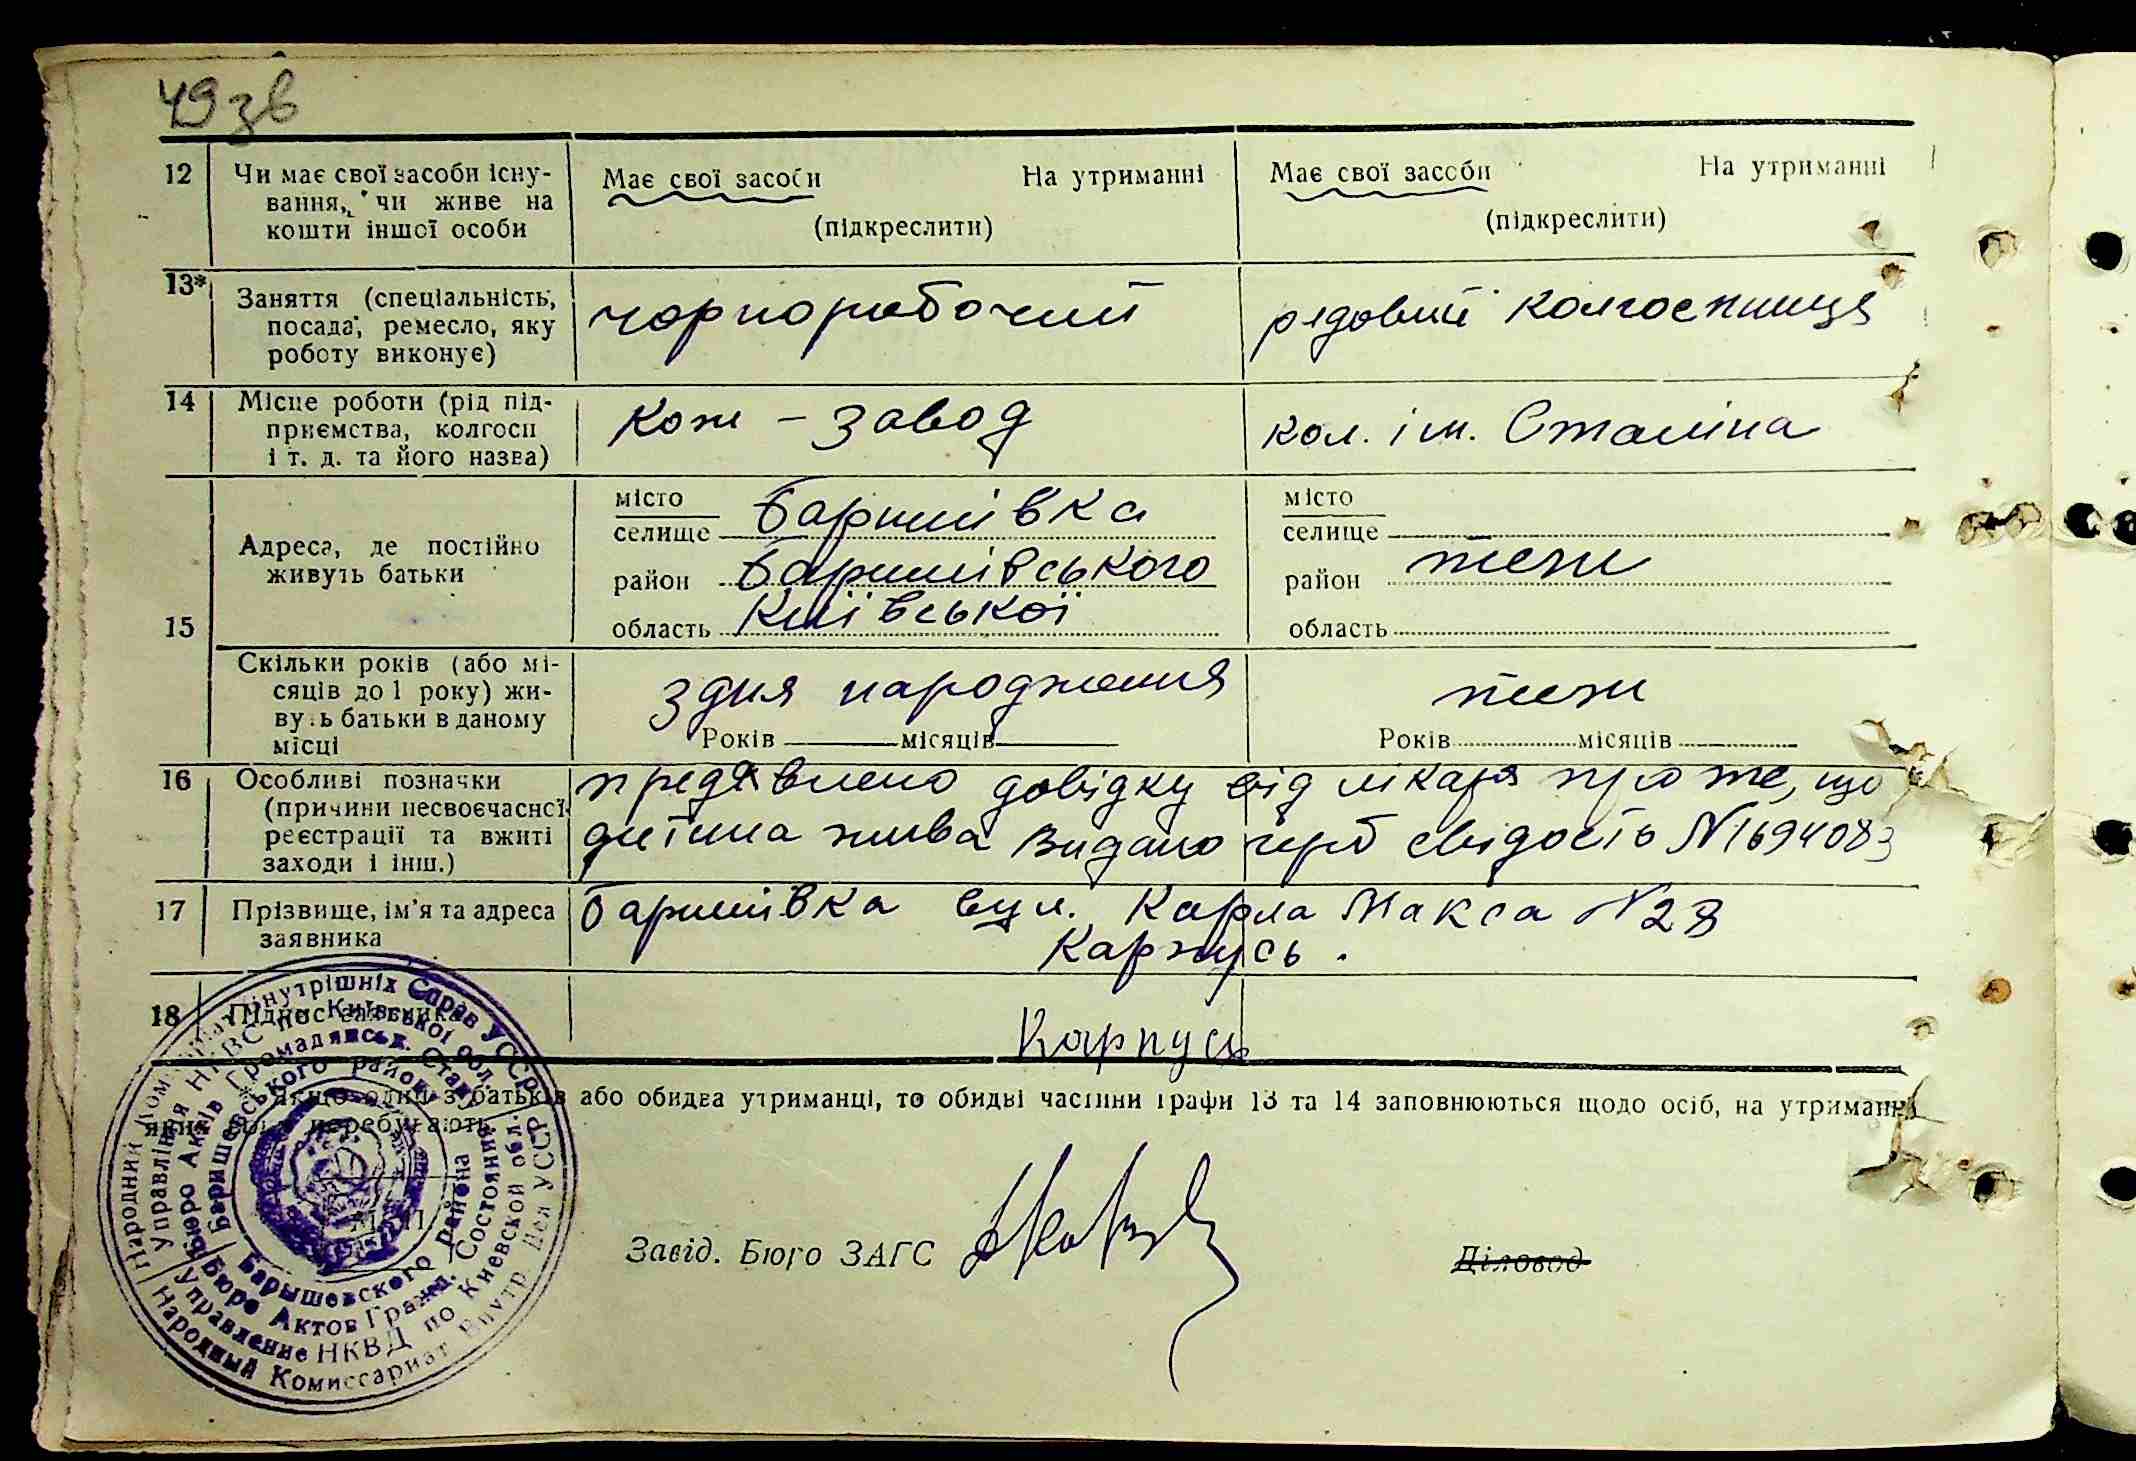 49 зв
12 Чи має свої засоби існу- Має свої засоби На утриманні Має свої засоби На утриманні
вання, чи живе на
кошти іншої особи (підкреслити) (підкреслити)
13* Заняття (спеціальність,
посада, ремесло, яку чорноробочий рядовий колгоспниця
роботу виконує)
14 Місце роботи (рід під-
приємства, колгосп Кож - завод кол. ім. Сталіна
і т. д. та його назва)
15
Адреса, де постійно
живуть батьки
місто
селище Баришівка
район Баришівського
область Київської
місто
селище
район тежи
область
Скільки років (або мі-
сяців до 1 року) жи- з дня народження тежи
вуть батьки в даному
місці Років місяців Років місяців
16 Особливі позначки предявлено довідку від лікаря про те, що
(причини несвоєчасної дитина жива Видано герб свідость N1694083
реєстрації та вжиті
заходи і інш.)
17 Прізвище, ім'я та адреса Баришівка вул. Карла Макса N 28
заявника Карпусь.
18 Підпис заявника Карпусь
* Якщо один з батьків або обидва утриманці, то обидві частини графи 13 та 14 заповнюються щодо осіб, на утриманні
яких вони перебувають.
М. П.
Завід. Бюро ЗАГС Діловод
Народний Ком Внутрішніх Справ УССР
Управління НКВС по Київської обл.
Бюро Актів Громадянськ. Стану
Баришевського району
Барышевского района
Бюро Актов Гражд. Состояния
Управление НКВД по Киевской обл.
Народный Комиссариат Внутр. Дел УССР